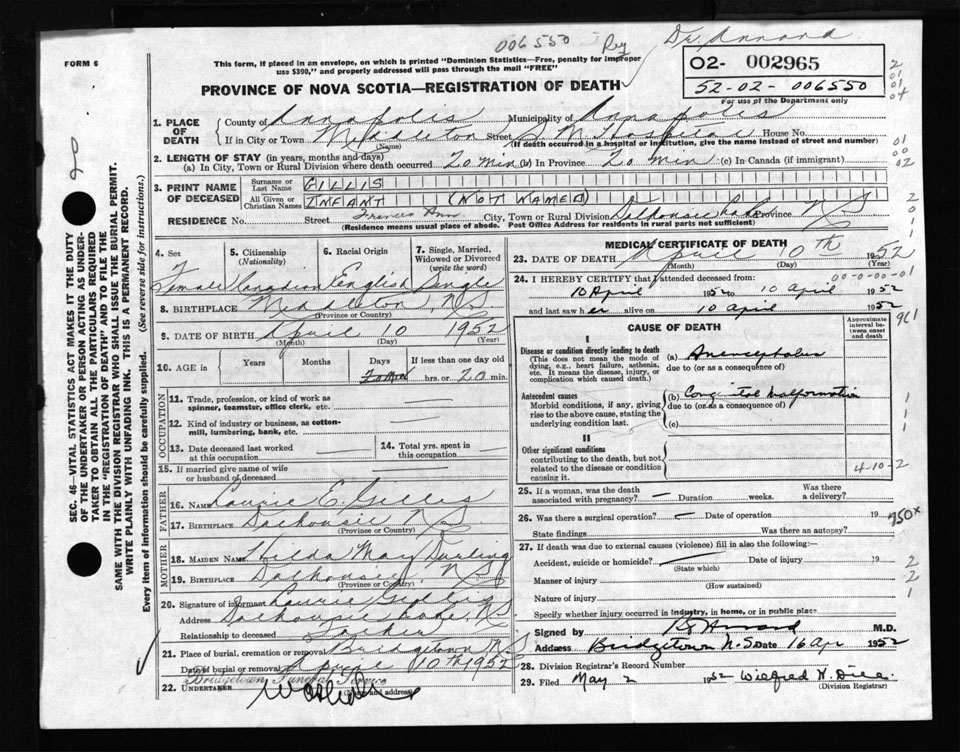 006550 Reg Dr. Annard
FORM 6
This form, if placed in an envelope, on which is printed "Dominion Statistics—Free, penalty for improper
use $300," and properly addressed will pass through the mail "FREE"
O2- 002965
52-02-006550
For use of the Department only
PROVINCE OF NOVA SCOTIA—REGISTRATION OF DEATH
1. PLACE OF DEATH
County of Annapolis Municipality of Annapolis
If in City or Town Middleton Street S. M. Hospital House No.
(Name) (If death occurred in a hospital or institution, give the name instead of street and number)
2. LENGTH OF STAY (in years, months and days)
(a) In City, Town or Rural Division where death occurred 20 min (b) In Province 20 min (c) In Canada (if immigrant)
3. PRINT NAME OF DECEASED
Surname or Last Name GILLIS
All Given or Christian Names INFANT (NOT NAMED)
Frances Ann
RESIDENCE No. Street City, Town or Rural Division Dalhousie Lake Province N S
(Residence means usual place of abode. Post Office Address for residents in rural parts not sufficient)
4. Sex
Female
5. Citizenship (Nationality)
Canadian
6. Racial Origin
English
7. Single, Married, Widowed or Divorced (write the word)
Single
8. BIRTHPLACE Middleton, N.S.
(Province or Country)
9. DATE OF BIRTH April 10 1952
(Month) (Day) (Year)
10. AGE in Years Months Days If less than one day old
20 min hrs. or 20 min.
OCCUPATION
11. Trade, profession, or kind of work as
spinner, teamster, office clerk, etc.
12. Kind of industry or business, as cotton-
mill, lumbering, bank, etc.
13. Date deceased last worked
at this occupation
14. Total yrs. spent in
this occupation
15. If married give name of wife
or husband of deceased
FATHER
16. NAME Laurie E. Gillis
17. BIRTHPLACE Dalhousie N.S.
(Province or Country)
MOTHER
18. MAIDEN NAME Hilda May
19. BIRTHPLACE Dalhousie, N.S.
(Province or Country)
20. Signature of informant Laurie Gillis
Address Dalhousie Lake, N.S
Relationship to deceased Father
21. Place of burial, cremation or removal Bridgetown N.S.
Date of burial or removal April 10th 1952
Bridgetown Funeral Service
22. UNDERTAKER
(Name and address)
MEDICAL CERTIFICATE OF DEATH
23. DATE OF DEATH April 10th 1952
(Month) (Day) (Year)
00-0-00-01
24. I HEREBY CERTIFY that I attended deceased from:
10 April 1952 to 10 April 1952
and last saw her alive on 10 April 1952
CAUSE OF DEATH
Approximate interval between onset and death
961
I
Disease or condition directly leading to death
(This does not mean the mode of
dying, e.g., heart failure, asthenia,
etc. It means the disease, injury, or
complication which caused death.)
(a) Anencephalus
due to (or as a consequence of)
Antecedent causes
Morbid conditions, if any, giving
rise to the above cause, stating the
underlying condition last.
(b) Congenital Malformation
due to (or as a consequence of)
(c)
II
Other significant conditions
contributing to the death, but not
related to the disease or condition
causing it.
4-10-2
25. If a woman, was the death
associated with pregnancy? — Duration weeks. Was there a delivery?
26. Was there a surgical operation? — Date of operation 19
750x
State findings Was there an autopsy?
27. If death was due to external causes (violence) fill in also the following:—
Accident, suicide or homicide? Date of injury 19
(State which)
Manner of injury
(How sustained)
Nature of injury
Specify whether injury occurred in industry, in home, or in public place
Signed by Annard M.D.
Address Bridgetown N.S. Date 16 Apr 1952
28. Division Registrar's Record Number
29. Filed May 2 1952 Wilfred H.
(Division Registrar)
SEC. 46—VITAL STATISTICS ACT MAKES IT THE DUTY
OF THE UNDERTAKER OR PERSON ACTING AS UNDER-
TAKER TO OBTAIN ALL THE PARTICULARS REQUIRED
IN THE "REGISTRATION OF DEATH" AND TO FILE THE
SAME WITH THE DIVISION REGISTRAR WHO SHALL ISSUE THE BURIAL PERMIT.
WRITE PLAINLY WITH UNFADING INK. THIS IS A PERMANENT RECORD.
Every item of information should be carefully supplied. (See reverse side for instructions.)